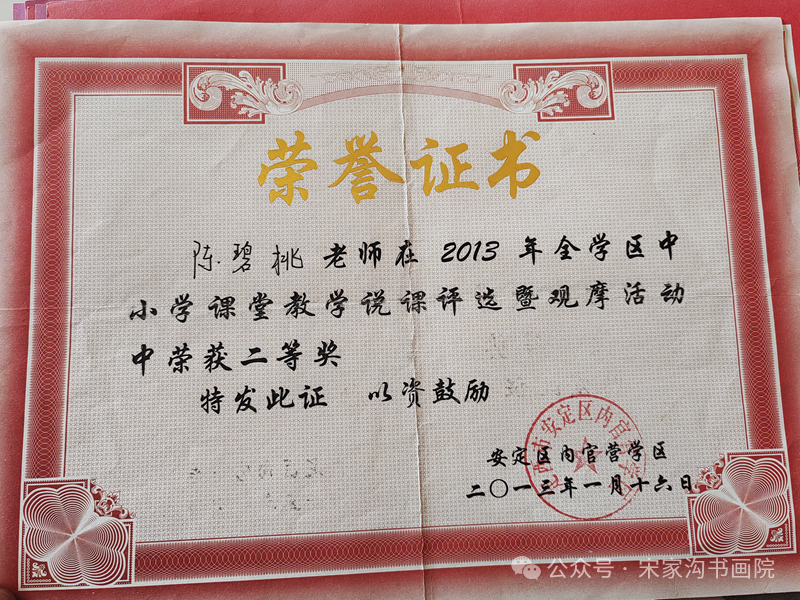 荣誉证书
陈碧桃老师在2013年全学区中
小学课堂教学说课评选暨观摩活动
中荣获二等奖
特发此证 以资鼓励
安定区内官营学区
二〇一三年一月十六日
公众号·宋家沟书画院